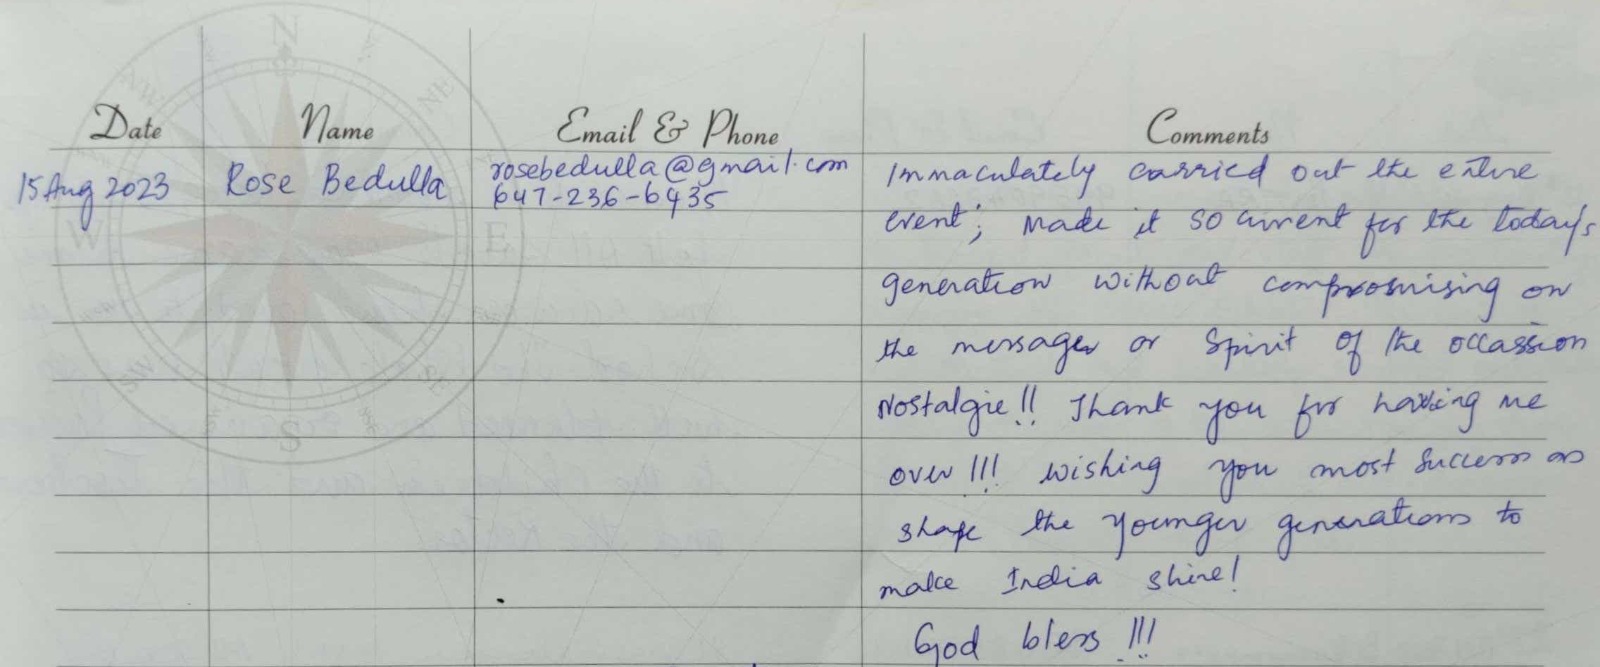 N
NE
E
SE
S
SW
W
Date Name Email & Phone Comments
15 Aug 2023 Rose Bedulla rosebedulla@gmail.com
647-236-6935
Immaculately carried out the entire
event; made it so current for the today's
generation without compromising on
the messages or spirit of the occassion
Nostalgie!! Thank you for having me
over!!! wishing you most success as
shape the younger generations to
make India shine!
God bless!!!